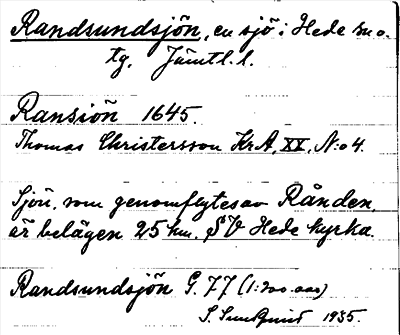 Randsundsjön, en sjö i Hede sn o.
tg. Jämtl. l.
Ransiön 1645.
Thomas Christersson KrA, XX, N:o 4.
Sjön, som genomflytes av Rånden,
är belägen 25 km. SV Hede kyrka.
Randsundsjön G. 77 (1:200 000)
S. 1935.